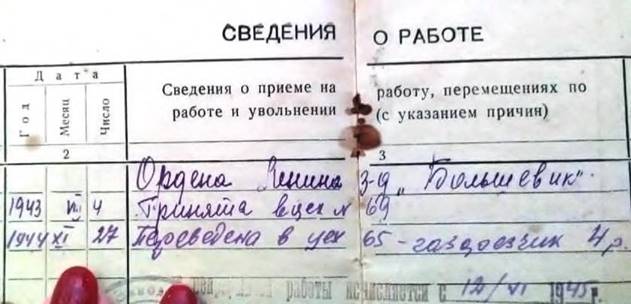 СВЕДЕНИЯ О РАБОТЕ
Дата
Год Месяц Число
Сведения о приеме на работу, перемещениях по
работе и увольнении (с указанием причин)
2 3
Ордена Ленина з-д „Большевик".
1943 4 Принята в цех № 69
1944 XI 27 Переведена в цех 65 - газорезчик 4 р.
работы исчисляется с 12/VI 1945 г.